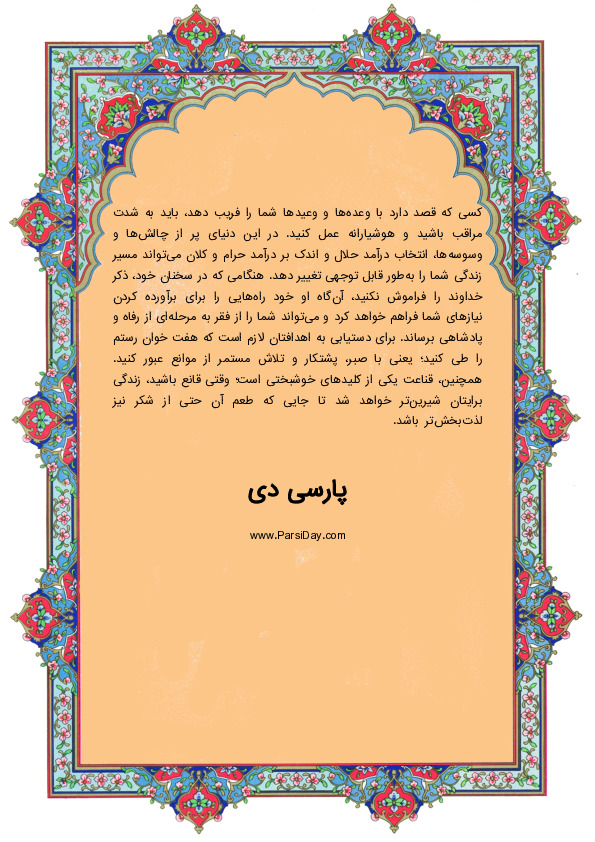 کسی که قصد دارد با وعده‌ها و وعیدها شما را فریب دهد، باید به شدت
مراقب باشید و هوشیارانه عمل کنید. در این دنیای پر از چالش‌ها و
وسوسه‌ها، انتخاب درآمد حلال و اندک بر درآمد حرام و کلان می‌تواند مسیر
زندگی شما را به‌طور قابل توجهی تغییر دهد. هنگامی که در سخنان خود، ذکر
خداوند را فراموش نکنید، آن‌گاه او خود راه‌هایی را برای برآورده کردن
نیازهای شما فراهم خواهد کرد و می‌تواند شما را از فقر به مرحله‌ای از رفاه و
پادشاهی برساند. برای دستیابی به اهدافتان لازم است که هفت خوان رستم
را طی کنید؛ یعنی با صبر، پشتکار و تلاش مستمر از موانع عبور کنید.
همچنین، قناعت یکی از کلیدهای خوشبختی است؛ وقتی قانع باشید، زندگی
برایتان شیرین‌تر خواهد شد تا جایی که طعم آن حتی از شکر نیز
لذت‌بخش‌تر باشد.
پارسی دی
www.ParsiDay.com